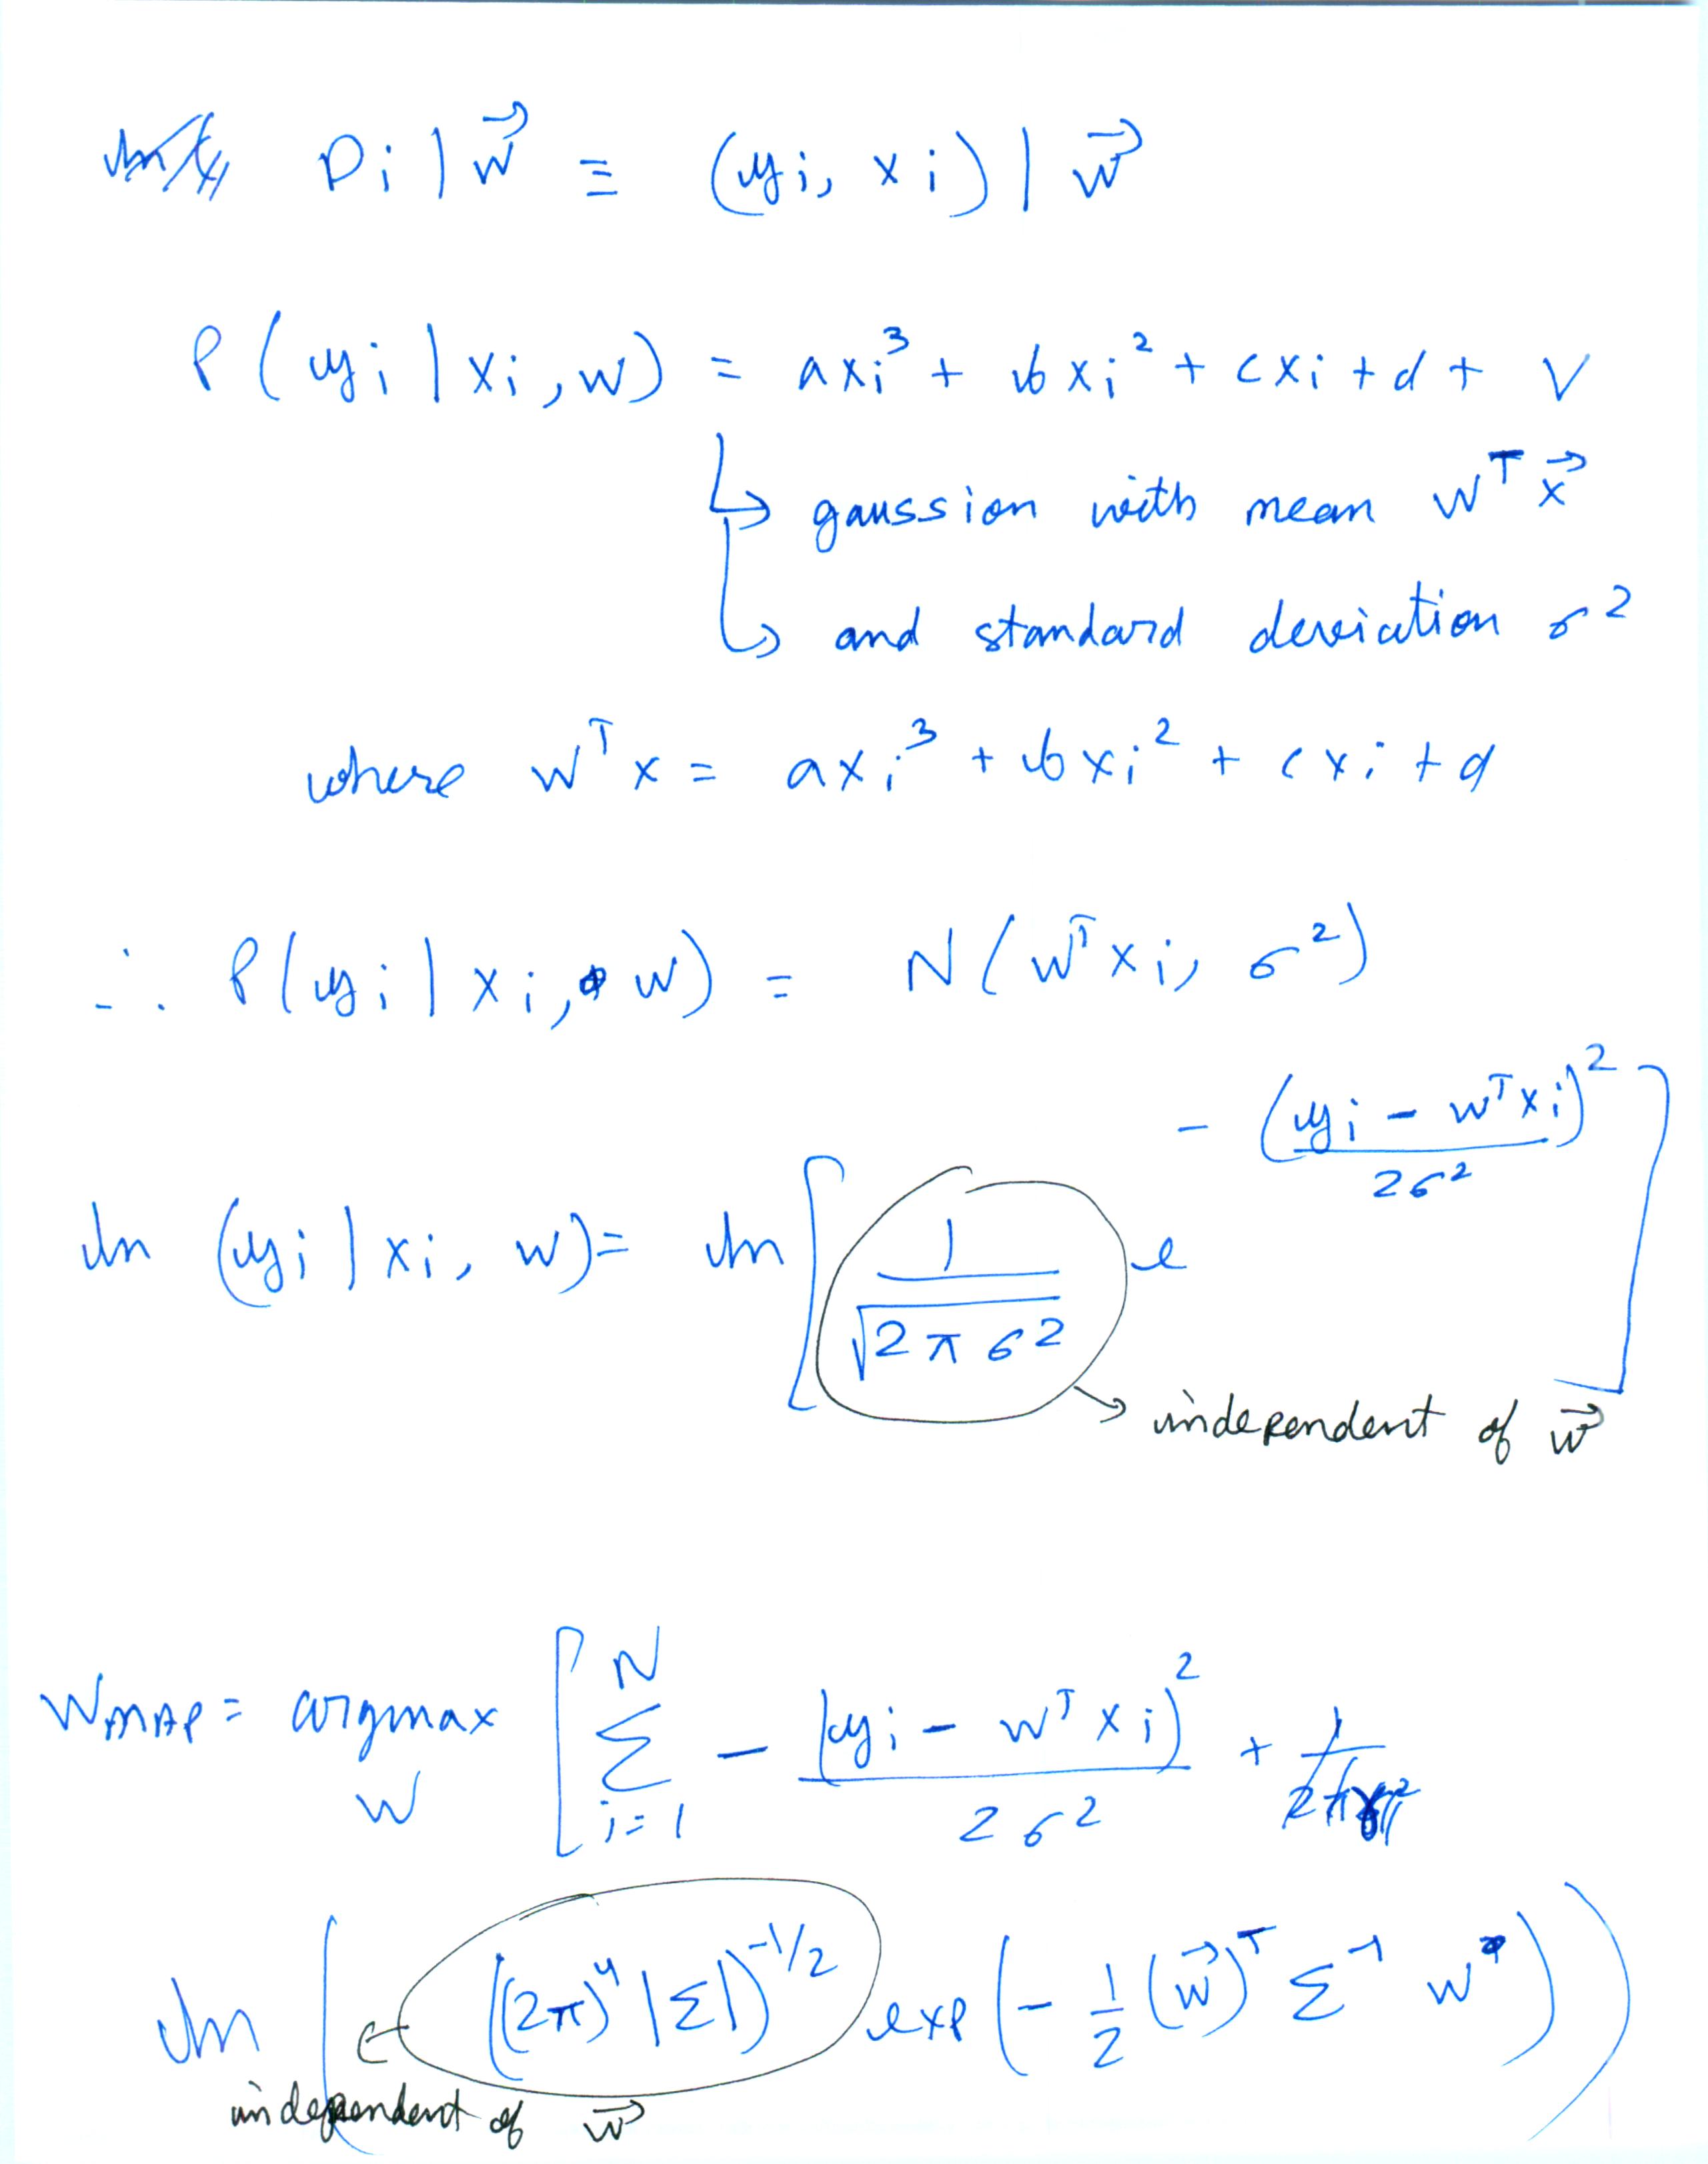 D_i | \vec{w} ≡ (y_i, x_i) | \vec{w}
P(y_i | x_i, w) = ax_i^3 + bx_i^2 + cx_i + d + v
↳ gaussion with mean w^T \vec{x}
↳ and standard deviation σ^2
where w^T x = ax_i^3 + bx_i^2 + cx_i + d
∴ P(y_i | x_i, w) = N(w^T x_i, σ^2)
ln (y_i | x_i, w) = ln [ \frac{1}{\sqrt{2πσ^2}} e^{-\frac{(y_i - w^T x_i)^2}{2σ^2}} ]
→ independent of \vec{w}
W_{MAP} = argmax_W [ \sum_{i=1}^{N} - \frac{(y_i - w^T x_i)^2}{2σ^2} +
ln ( ((2π)^4 |Σ|)^{-1/2} exp(- \frac{1}{2} (\vec{w})^T Σ^{-1} w) )
independent of \vec{w}